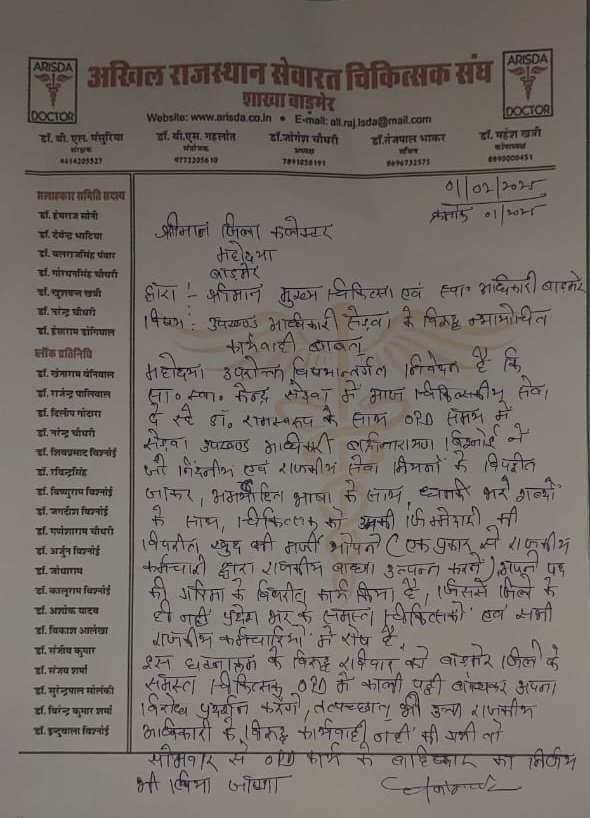 ARISDA
DOCTOR
अखिल राजस्थान सेवारत चिकित्सक संघ
शाखा बाड़मेर
ARISDA
DOCTOR
Website: www.arisda.co.in • E-mail: all.raj.isda@mail.com
डॉ. बी.एल. मंसुरिया
संरक्षक
9414205527
डॉ. बी.एस. गहलोत
संयोजक
9772205610
डॉ.जोगेश चौधरी
अध्यक्ष
7891058191
डॉ.तेजपाल भाकर
सचिव
8696732575
डॉ. महेश खत्री
कोषाध्यक्ष
8890000451
सलाहकार समिति सदस्य
डॉ. हेमराज सोनी
डॉ. देवेन्द्र भाटिया
डॉ. बलराजसिंह पंवार
डॉ. गोरधनसिंह चौधरी
डॉ. खुशवन्त खत्री
डॉ. नरेन्द्र चौधरी
डॉ. हेमराम डोगियाल
ब्लॉक प्रतिनिधि
डॉ. खेताराम घंनिवाल
डॉ. राजेन्द्र पालिवाल
डॉ. दिलीप गोदारा
डॉ. नरेन्द्र चौधरी
डॉ. शिवप्रसाद बिश्नोई
डॉ. रविन्द्रसिंह
डॉ. बिष्णुराम बिश्नोई
डॉ. जगदीश बिश्नोई
डॉ. गणेशाराम चौधरी
डॉ. अर्जुन विश्नोई
डॉ. जोधाराम
डॉ. कालूराम विश्नोई
डॉ. अशोक यादव
डॉ. विकाश आलेखा
डॉ. संजीव कुमार
डॉ. संजय शर्मा
डॉ. सुरेन्द्रपाल सोलंकी
डॉ. विरेन्द्र कुमार शर्मा
डॉ. इन्दुबाला विश्नोई
01/02/2025
क्रमांक 01/2025
श्रीमान जिला कलेक्टर
महोदया
बाड़मेर
द्वारा :- श्रीमान मुख्य चिकित्सा एवं स्वा० अधिकारी बाड़मेर
विषय :- उपखण्ड अधिकारी सेड़वा के विरुद्ध न्यायोचित
कार्यवाही बाबत्
महोदया उपरोक्त विषयान्तर्गत निवेदन है कि
सा० स्वा० केन्द्र सेड़वा में आज चिकित्सकीय सेवा
दे रहे डॉ. रामस्वरूप के साथ OPD समय में
सेड़वा उपखण्ड अधिकारी बद्रीनारायण विश्नोई ने
जो निंदनीय एवं राजकीय सेवा नियमों के विपरीत
जाकर, अमर्यादित भाषा के साथ, धमकी भरे शब्दों
के साथ, चिकित्सक को उसकी जिम्मेदारी की
विपरीत खुद की मर्जी थोपने (एक प्रकार से राजकीय
कर्मचारी द्वारा राजकीय बाधा उत्पन्न करने) अपने पद
की गरिमा के विपरीत कार्य किया है, जिससे जिले के
ही नहीं प्रदेश भर के समस्त चिकित्सकों एवं सभी
राजकीय कर्मचारियों में रोष है.
इस घटनाक्रम के विरुद्ध रविवार को बाड़मेर जिले के
समस्त चिकित्सक OPD में काली पट्टी बांधकर अपना
विरोध प्रदर्शन करेंगे, तत्पश्चात् भी उक्त राजकीय
अधिकारी के विरुद्ध कार्यवाही नहीं की गयी तो
सोमवार से OPD कार्य के बहिष्कार का निर्णय
भी लिया जाएगा